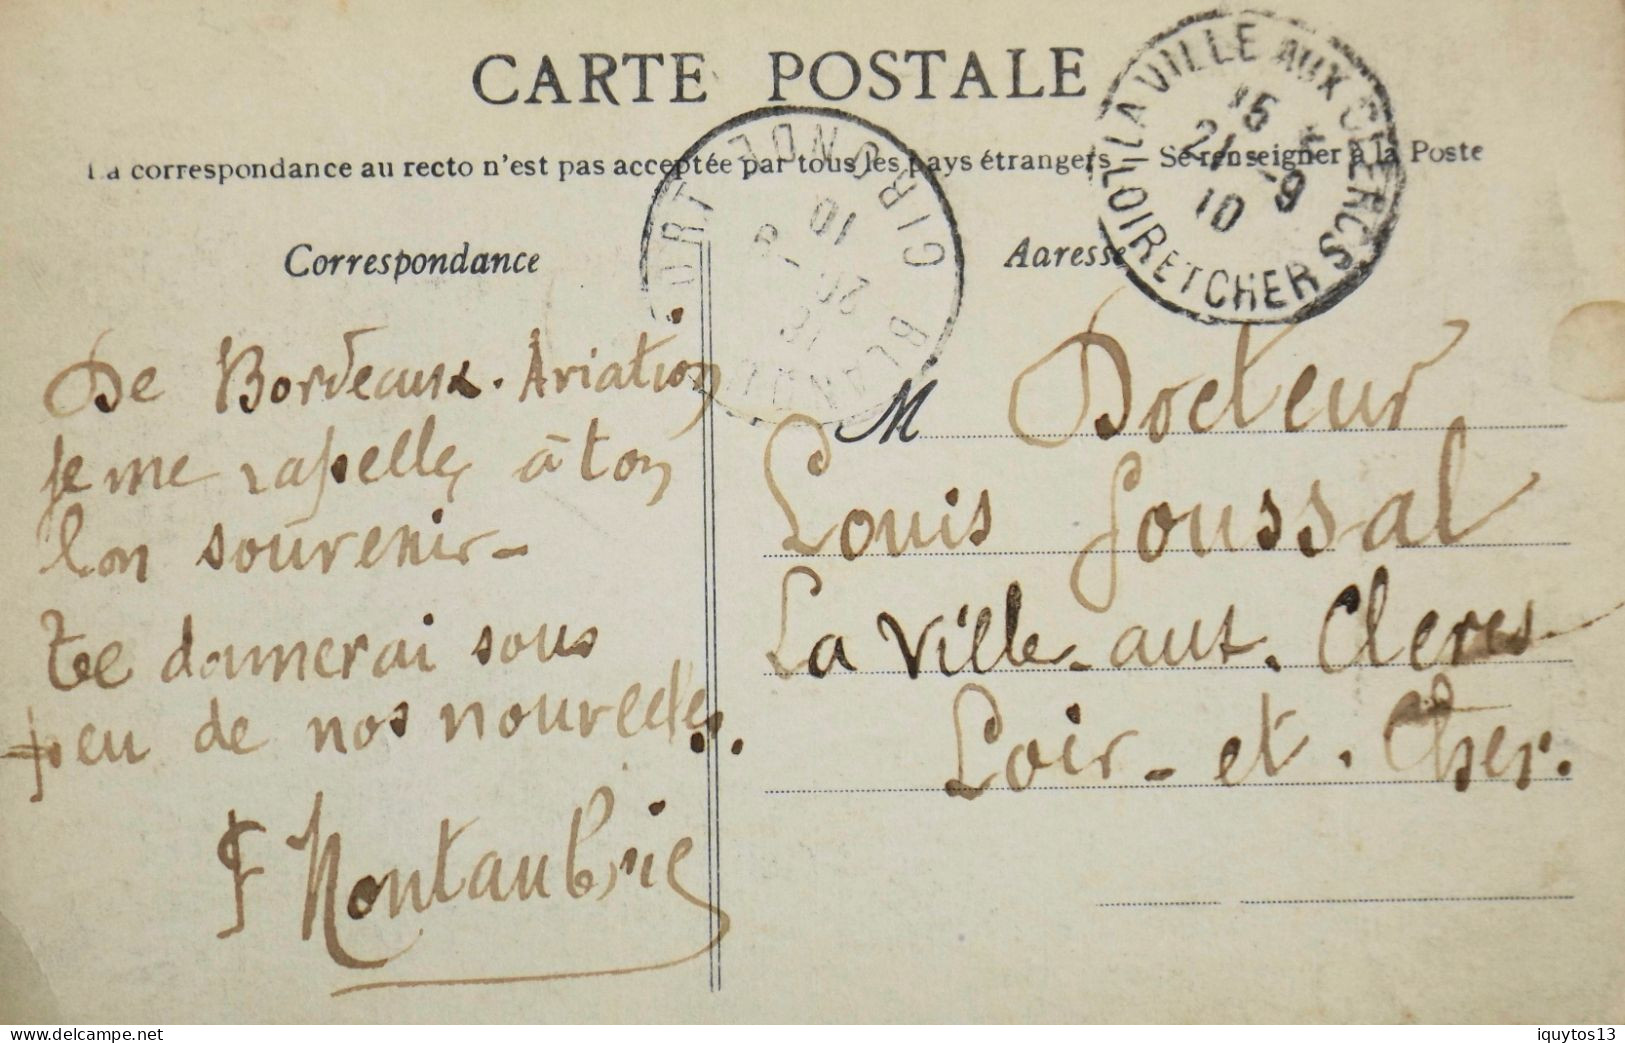 CARTE POSTALE
La correspondance au recto n'est pas acceptée par tous les pays étrangers - Se renseigner à la Poste
Correspondance
Adresse
LA VILLE AUX CLERCS
LOIR ET CHER
15
21 - 9
10
GIRONDE
De Bordeaux-Aviation
je me rapelle, à ton
bon souvenir-
te donnerai sous
peu de nos nouvelles.
F Montaubric
M Docteur
Louis Joussal
La Ville-aux-Clercs
Loir-et-Cher.
www.delcampe.net
iquytos13